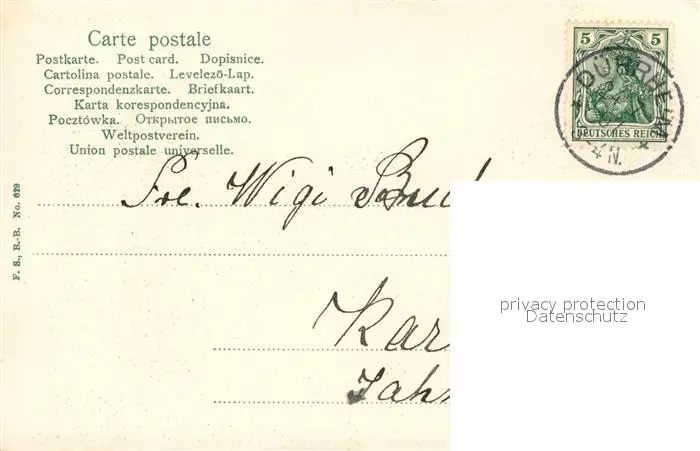 Carte postale
Postkarte. Post card. Dopisnice.
Cartolina postale. Levelező-Lap.
Correspondenzkarte. Briefkaart.
Karta korespondencyjna.
Pocztówka. Открытое письмо.
Weltpostverein.
Union postale universelle.
5 5
DEUTSCHES REICH
DÜRRHEIM
4 N.
Wigi
Kar
Jah
F. S., B.-B. No. 629
privacy protection
Datenschutz